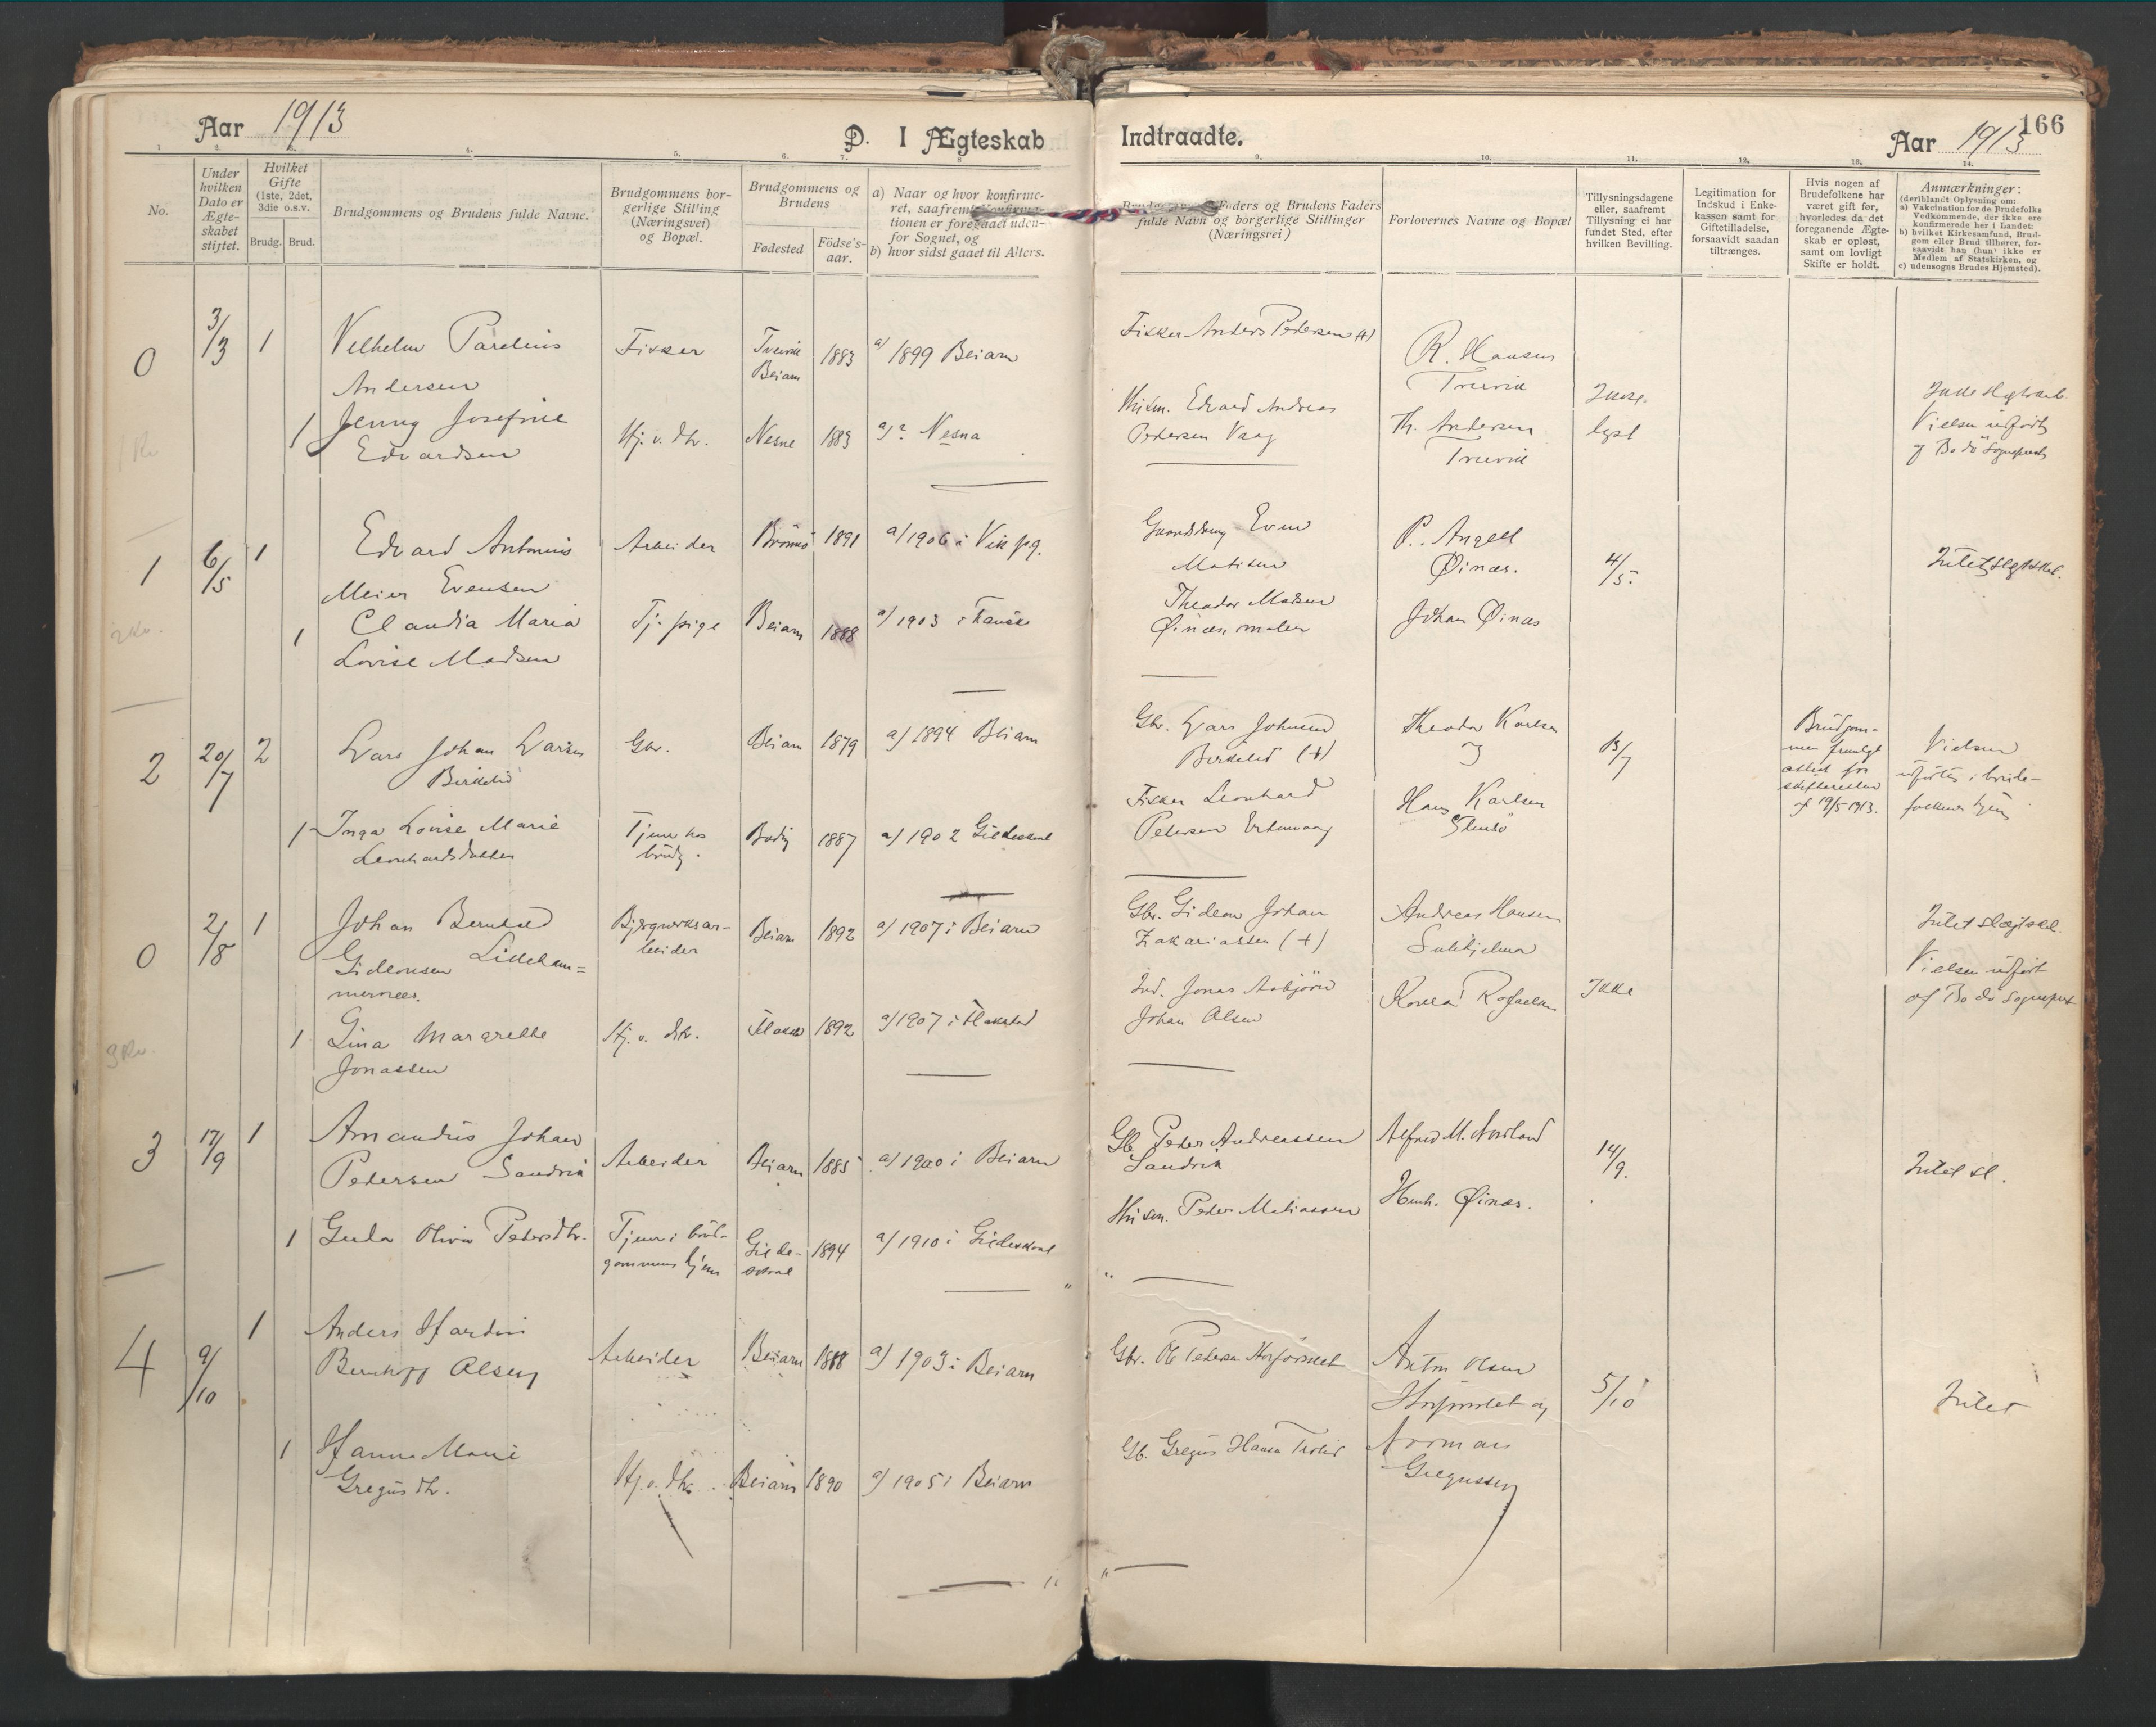 Aar 1913
D. I Ægteskab
Indtraadte.
Aar 1913
166
1. 2. 3. 4. 5. 6. 7. 8. 9. 10. 11. 12. 13. 14.
No.
Under
hvilken
Dato er
Ægte-
skabet
stiftet.
Hvilket
Gifte
(1ste, 2det,
3die o.s.v.
Brudg. Brud.
Brudgommens og Brudens fulde Navne.
Brudgommens bor-
gerlige Stilling
(Næringsvei)
og Bopæl.
Brudgommens og
Brudens
Fødested
Födse's-
aar.
a) Naar og hvor konfirme-
ret, saafremt Konfirma-
tionen er foregaaet uden-
for Sognet, og
b) hvor sidst gaaet til Alters.
Faders og Brudens Faders
fulde Navn og borgerlige Stillinger
(Næringsvei)
Forlovernes Navne og Bopæl
Tillysningsdagene
eller, saafremt
Tillysning ei har
fundet Sted, efter
hvilken Bevilling.
Legitimation for
Indskud i Enke-
kassen samt for
Giftetilladelse,
forsaavidt saadan
tiltrænges.
Hvis nogen af
Brudefolkene har
været gift før,
hvorledes da det
foregaaende Ægte-
skab er opløst,
samt om lovligt
Skifte er holdt.
Anmærkninger:
(deriblandt Oplysning om:
a) Vakcination for de Brudefolks
Vedkommende, der ikke ere
konfirmerede her i Landet;
b) hvilket Kirkesamfund, Brud-
gom eller Brud tilhører, for-
saavidt han (hun) ikke er
Medlem af Statskirken, og
c) udensogns Brudes Hjemsted).
0 3/3 1 Vilhelm Parelius
Andersen
Fisker
Beiarn
1883
a) 1899 Beiarn
Fisker Anders Pedersen (+)
R. Hansen
1 Jenny Josefine
Edvardsen
Hj. v. dtr.
Nesne
1883
a) ? Nesna
Husm. Edvard Andreas
Pedersen Vaag
Th. Andersen
Ikke
lyst
Vielsen udført
af Bodö Sogneprest
1 6/5 1 Edvard Antonius
Meier Evensen
Arbeider
Brönnö
1891
a) 1906 i Vik pg.
Even
Matisen
P. Angell
Øinæs.
4/5.
Intet slgtskab.
2 Kr.
1 Claudia Maria
Lovise Madsen
Tj. pige
Beiarn
1888
a) 1903 i Fauske
Theodor Madsen
Øinæs, maler
Johan Øinæs
2 20/7 2 Lars Johan Larsen
Birkelid
Gbr.
Beiarn
1879
a) 1894 Beiarn
Gbr. Lars Johnsen
Birkelid (+)
Theodor Karlsen
og
Hans Karlsen
13/7
Brudgom-
men fremlgt
attest fra
skifteretten
af 19/5 1913.
Vielsen
udförtes i brude-
folkenes hjem
1 Inga Lovise Marie
Leonhardsdatter
Tjener hos
brudg.
Bodin
1887
a) 1902 Gildeskaal
Fisker Leonhard
Pedersen
0 2/8 1 Johan Bernhard
Gideonsen Lilleham=
mernes.
Bjergverksar-
beider
Beiarn
1892
a) 1907 i Beiarn
Gbr. Gideon Johan
Zakariassen (+)
Andreas Hansen
Sulitjelma
Intet slægtskab.
Vielsen udført
af Bodö Sogneprest
3 Kr.
1 Gina Margrethe
Jonassen
Hj. v. dtr.
1892
a) 1907 i Flakstad
Ind. Jonas Asbjörn
Johan Olsen
Ikke
3 17/9 1 Amandus Johan
Pedersen Sandvik
Arbeider
Beiarn
1885
a) 1900 i Beiarn
Gb. Peder Andreassen
Sandvik
Alfred M. Nordland
14/9.
Intet sl.
1 Gerda Olivia Pedersdtr.
Tjener i brud-
gommens hjem
Gilde-
skaal
1894
a) 1910 i Gildeskaal
Husm. Peder Matiassen
Henh. Øinæs.
4 9/10 1 Anders Hartvig
Bernhoff Olsen
Arbeider
Beiarn
1888
a) 1903 i Beiarn
Gbr. Ole Pedersen
Anton Olsen
og
5/10
Intet
1 Hanna Marie
Gregusdtr.
Hj. v. dtr.
Beiarn
1890
a) 1905 i Beiarn
Gb. Gregus Hansen
Norman
Gregussen